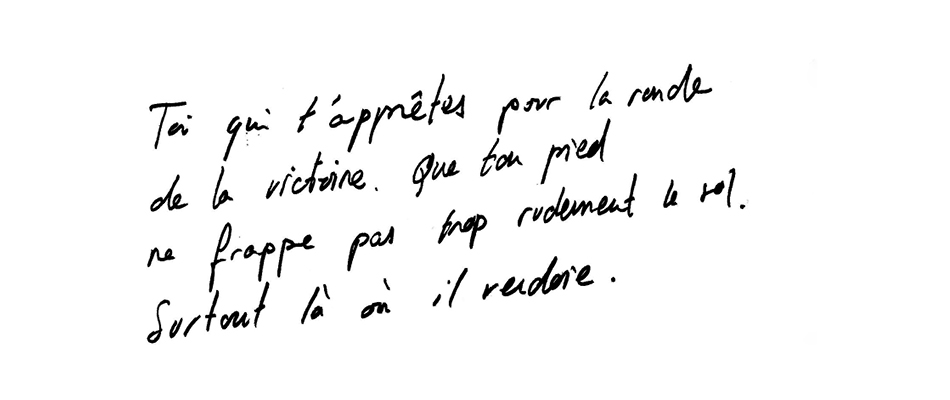 Toi qui t'apprêtes pour la ronde
de la victoire. Que ton pied
ne frappe pas trop rudement le sol.
Surtout là où il verdoie.